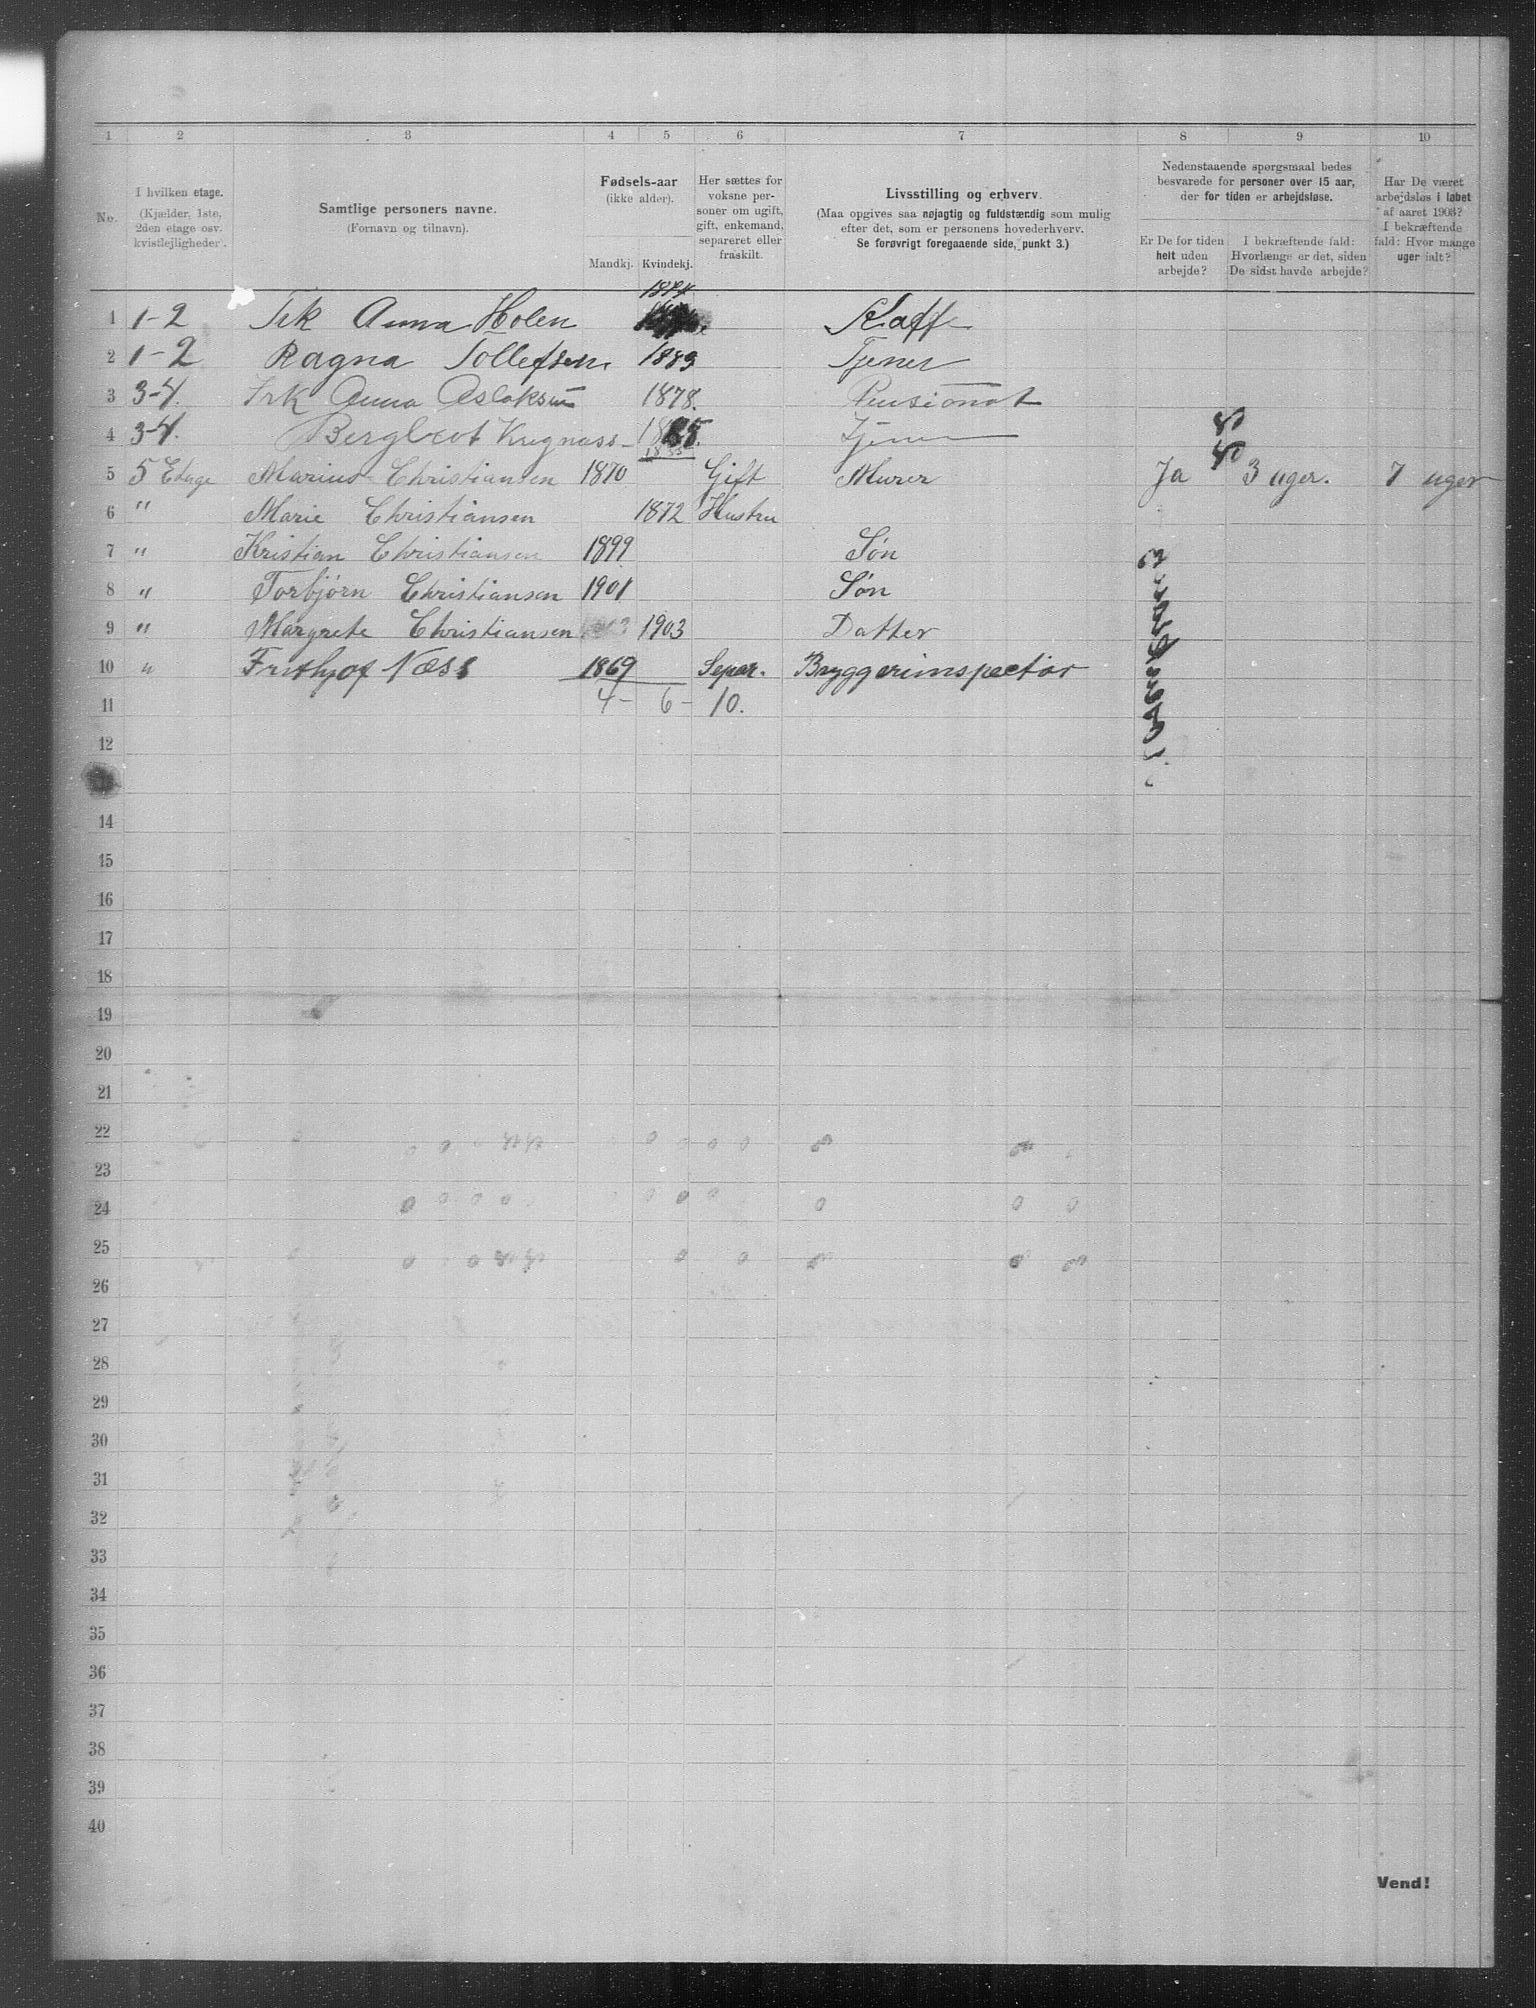 1 2 3 4 5 6 7 8 9 10
No.
I hvilken etage.
(Kjælder, 1ste,
2den etage osv.
kvistlejligheder).
Samtlige personers navne.
(Fornavn og tilnavn).
Fødsels-aar
(ikke alder).
Mandkj. Kvindekj.
Her sættes for
voksne per-
soner om ugift,
gift, enkemand,
separeret eller
fraskilt.
Livsstilling og erhverv.
(Maa opgives saa nøjagtig og fuldstændig som mulig
efter det, som er personens hovederhverv.
Se forøvrigt foregaaende side, punkt 3.)
Nedenstaaende spørgsmaal bedes
besvarede for personer over 15 aar,
der for tiden er arbejdsløse.
Er De for tiden
helt uden
arbejde?
I bekræftende fald:
Hvorlænge er det, siden
De sidst havde arbejde?
Har De været
arbejdsløs i løbet
af aaret 1903?
I bekræftende
fald: Hvor mange
uger ialt?
1 1-2 Frk Anna Holen 1874
2 1-2 Ragna Tollefsen 1883 Tjener
3 3-4. Frk Anna Aslaksen 1878. Pensionat
4 3-4. Bergljot Tjener
5 5 Etage Marius Christiansen 1870 Gift Murer Ja 3 uger. 7 uger
6 " Marie Christiansen 1872 Hustru
7 " Kristian Christiansen 1899 Søn
8 " Torbjørn Christiansen 1901 Søn
9 " Margrete Christiansen 1903 Datter
10 " Frithjof Næss 1869 Separ. Bryggeriinspectør
11 4- 6- 10.
12
14
15
16
17
18
19
20
21
22
23
24
25
26
27
28
29
30
31
32
33
34
35
36
37
38
39
40
Vend!